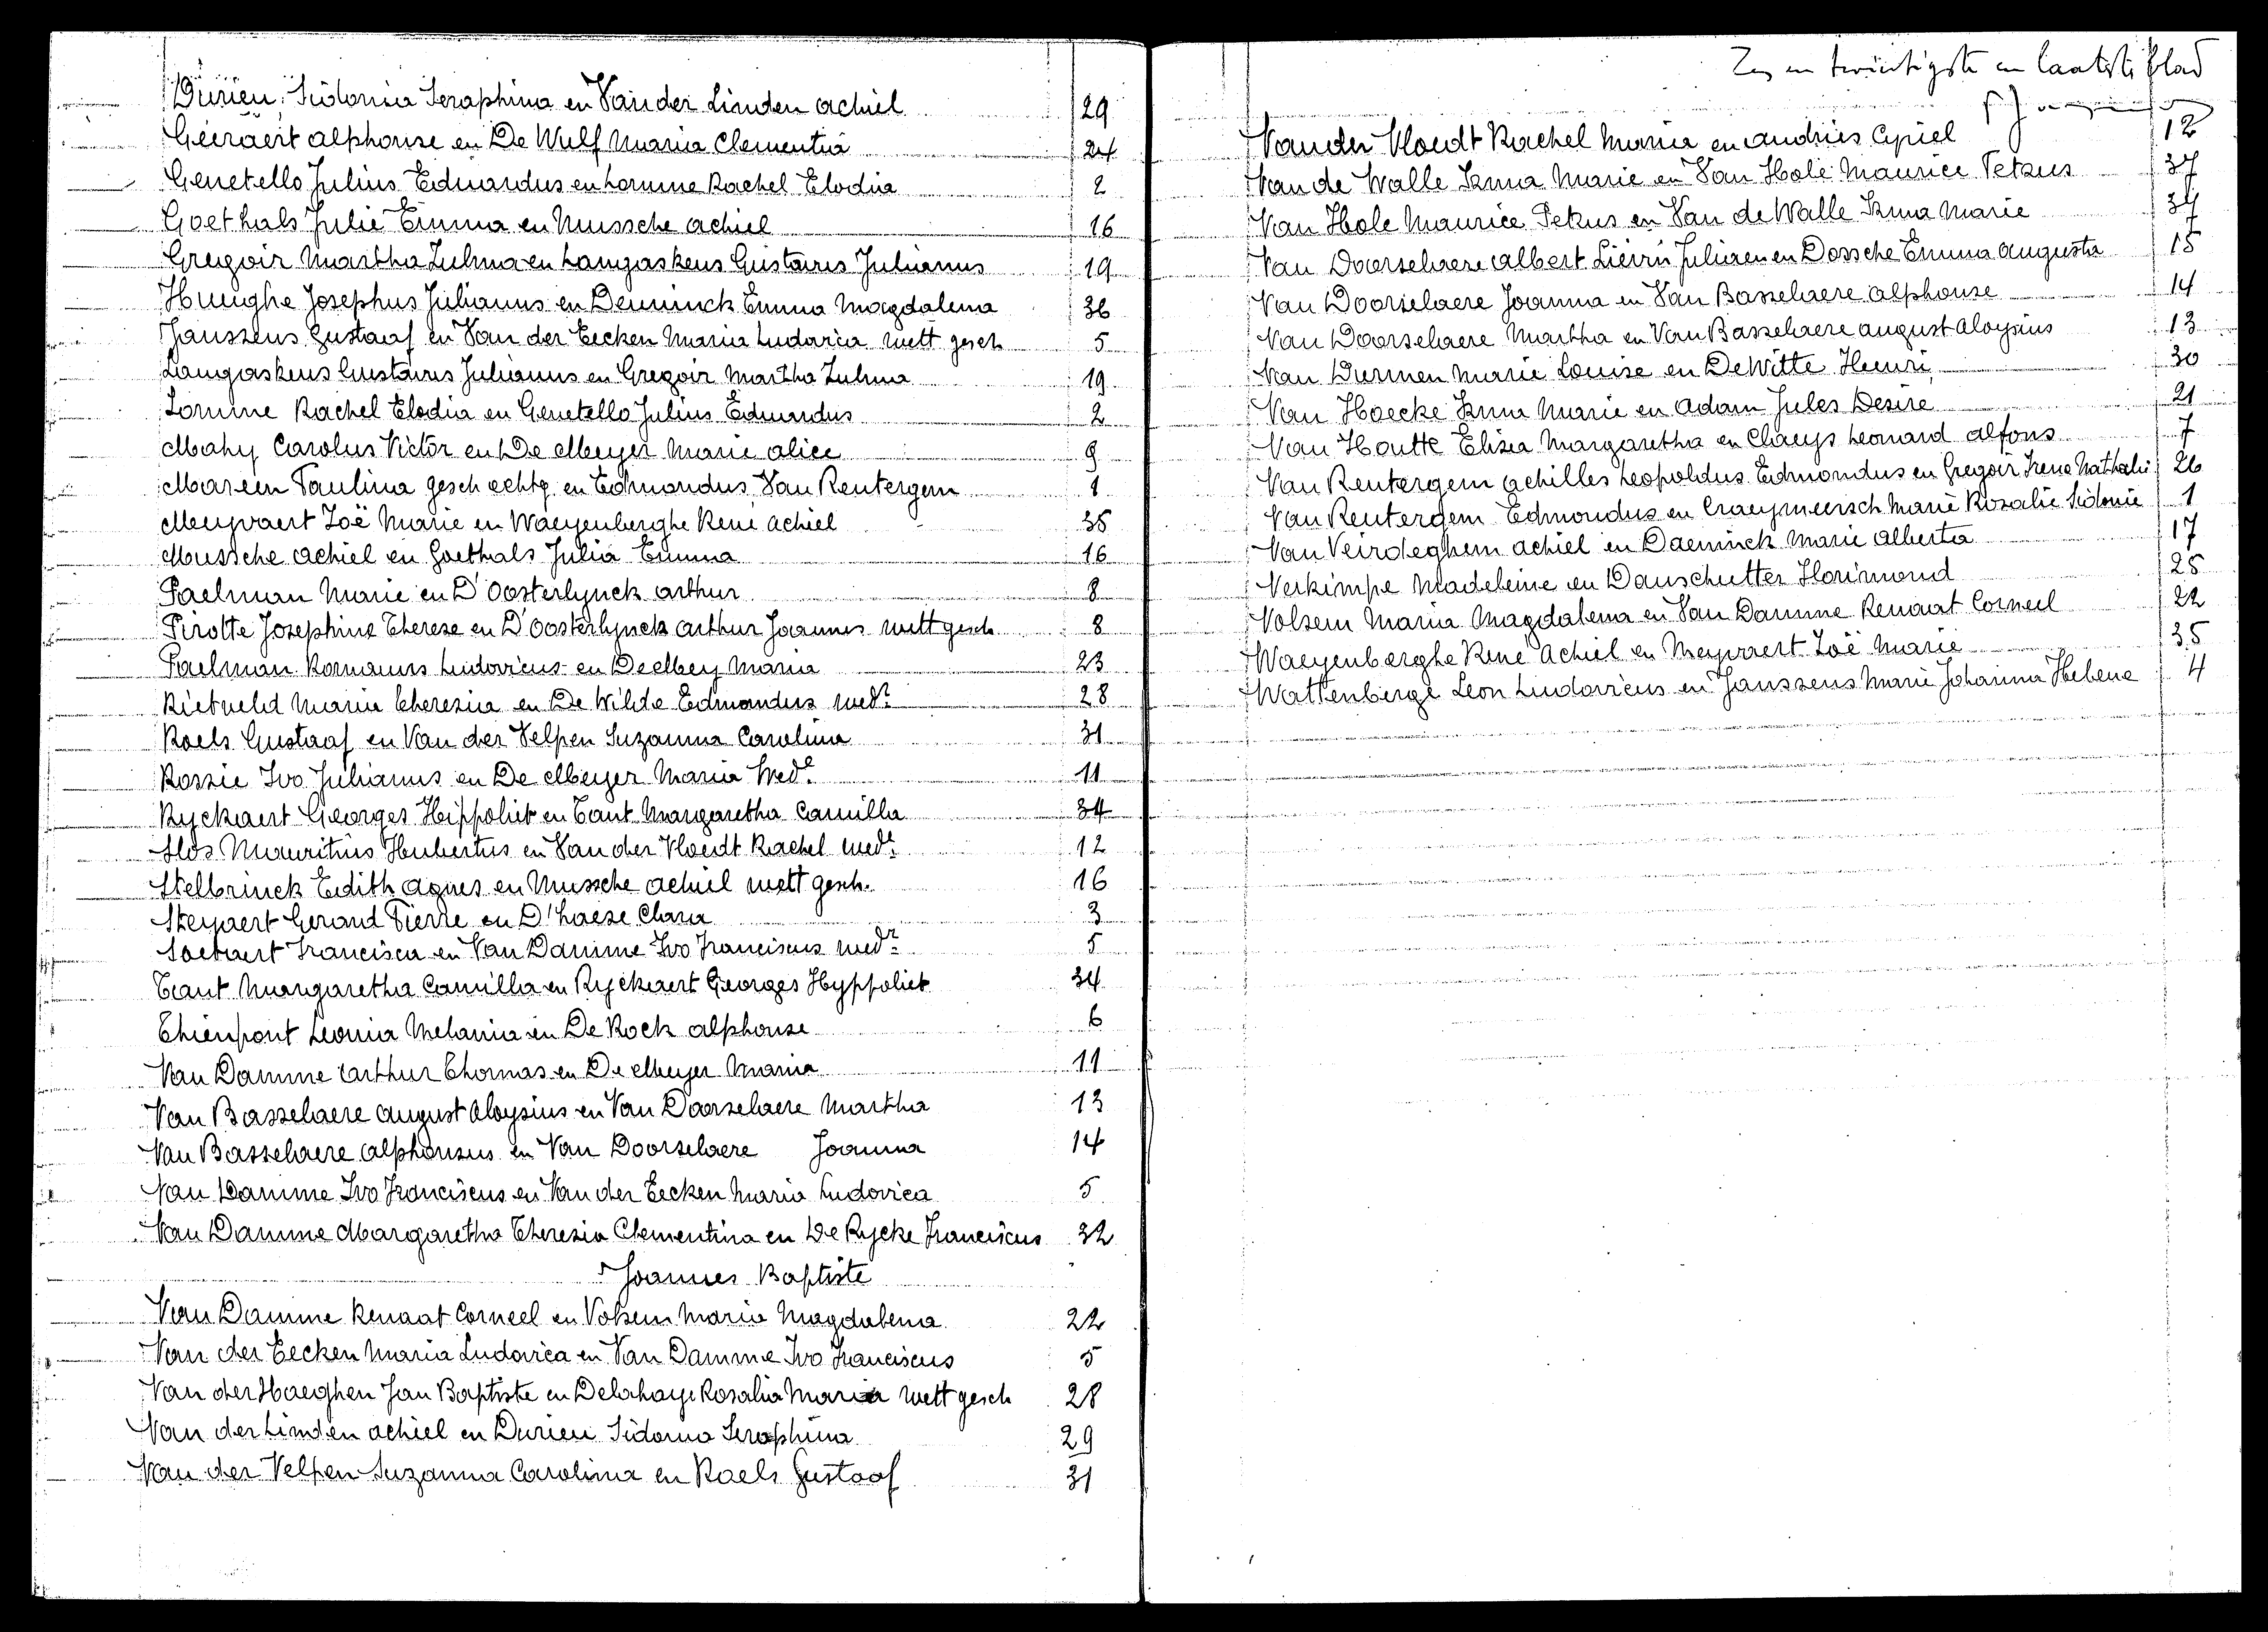 Durieu, Sidonia Seraphina en Van der Linden Achiel 29
Geeraert Alphonse en De Wulf Maria Clementia 24
Genetello Julius Eduardus en Lomme Rachel Elodia 2
Goethals Julie Emma en Mussche Achiel 16
Gregoir Martha Zulma en Langaskens Gustavus Julianus 19
Huughe Josephus Julianus en Deuninck Emma Magdalena 36
Janssens Gustaaf en Van der Eecken Maria Ludovica wett gesch 5
Langaskens Gustavus Julianus en Gregoir Martha Zulma 19
Lomme Rachel Elodia en Genetello Julius Eduardus 2
Mahy Carolus Victor en De Meyer Marie Alice 9
Mareen Paulina gesch echtg en Edmondus Van Rentergem 1
Meyvaert Zoë Marie en Waeyenberghe René Achiel 35
Mussche Achiel en Goethals Julia Emma 16
Paelman Marie en D'Oosterlynck Arthur 8
Pirotte Josephine Therese en D'Oosterlynck Arthur Joannes wett gesch 8
Paelman Romanus Ludovicus en De Mey Maria 23
Rietveld Maria Theresia en De Wilde Edmondus wedr 28
Roels Gustaaf en Van der Velpen Suzanna Carolina 31
Rossie Ivo Julianus en De Meyer Maria Wede 11
Ryckaert Georges Hippoliet en Tant Margaretha Camilla 34
Slos Mauritius Hubertus en Van der Vloedt Rachel wede 12
Stelbrinck Edith Agnes en Mussche Achiel wett gesch. 16
Steyaert Gerard Pierre en D'haese Clara 3
Soetaert Francisca en Van Damme Ivo Franciscus wedr 5
Tant Margaretha Camilla en Ryckaert Georges Hyppoliet 34
Thienpont Leonia Melania en De Kock Alphonse 6
Van Damme Arthur Thomas en De Meyer Maria 11
Van Basselaere August Aloysius en Van Doorselaere Martha 13
Van Basselaere Alphonsus en Van Doorselaere Joanna 14
Van Damme Ivo Franciscus en Van der Eecken Maria Ludovica 5
Van Damme Margaretha Theresia Clementina en De Rycke Franciscus 32
Joannes Baptiste
Van Damme Renaat Corneel en Volsem Maria Magdalena 22
Van der Eecken Maria Ludovica en Van Damme Ivo Franciscus 5
Van der Haeghen Jan Baptiste en Delahaye Rosalia Maria wett gesch 28
Van der Linden Achiel en Durieu Sidonia Seraphina 29
Van der Velpen Suzanna Carolina en Roels Gustaaf 31
Zes en twintigste en laatste blad
Van der Vloedt Rachel Maria en Andries Cyriel 12
Van de Walle Irma Marie en Van Hole Maurice Petrus 37
Van Hole Maurice Petrus en Van de Walle Irma Marie 37
Van Doorselaere Albert Liévin Julien en Dossche Emma Augusta 15
Van Doorselaere Joanna en Van Basselaere Alphonse 14
Van Doorselaere Martha en Van Basselaere August Aloysius 13
Van Durmen Marie Louise en De Witte Henri 30
Van Hoecke Irma Marie en Adam Jules Desire 21
Van Houtte Elisea Margaretha en Claeys Leonard Alfons 7
Van Rentergem Achilles Leopoldus Edmondus en Gregoir Irena Nathalie 26
Van Rentergem Edmondus en Craeymeersch Marie Rosalie Sidonie 1
Van Veirdeghem Achiel en Daeninck Marie Alberta 17
Verkimpe Madeleine en Danschutter Florimond 25
Volsem Maria Magdalena en Van Damme Renaat Corneel 22
Waeyenberghe René Achiel en Meyvaert Zoë Marie 35
Wattenberge Leon Ludovicus en Janssens Marie Johanna Helena 4